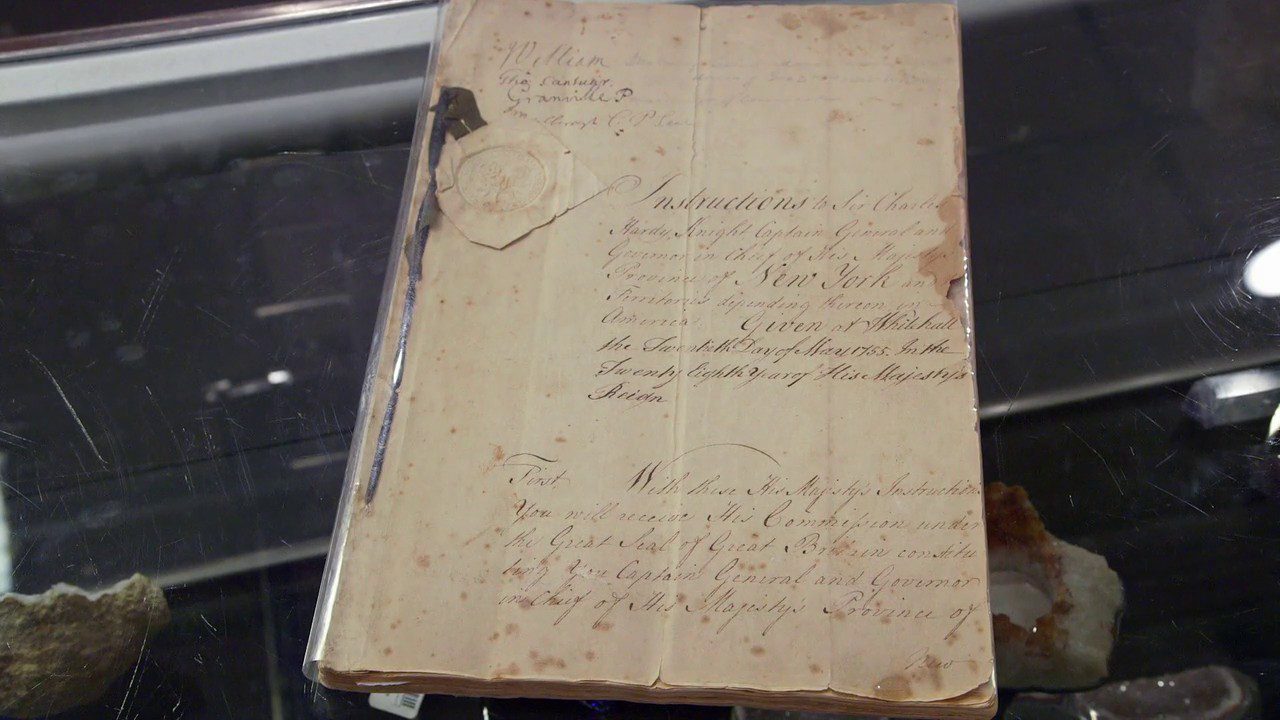 William
Tho Cantuar.
Granville P
C. P. S.
Instructions to Sir Charles
Hardy, Knight Captain General and
Governor in Chief of His Majesty's
Province of New York and
Territories depending thereon in
America. Given at Whitehall
the Twentieth Day of May 1755. In the
Twenty Eighth Year of His Majesty's
Reign
First With these His Majesty's Instructions
You will receive His Commission under
the Great Seal of Great Britain constitu
ting You Captain General and Governor
in Chief of His Majesty's Province of
New